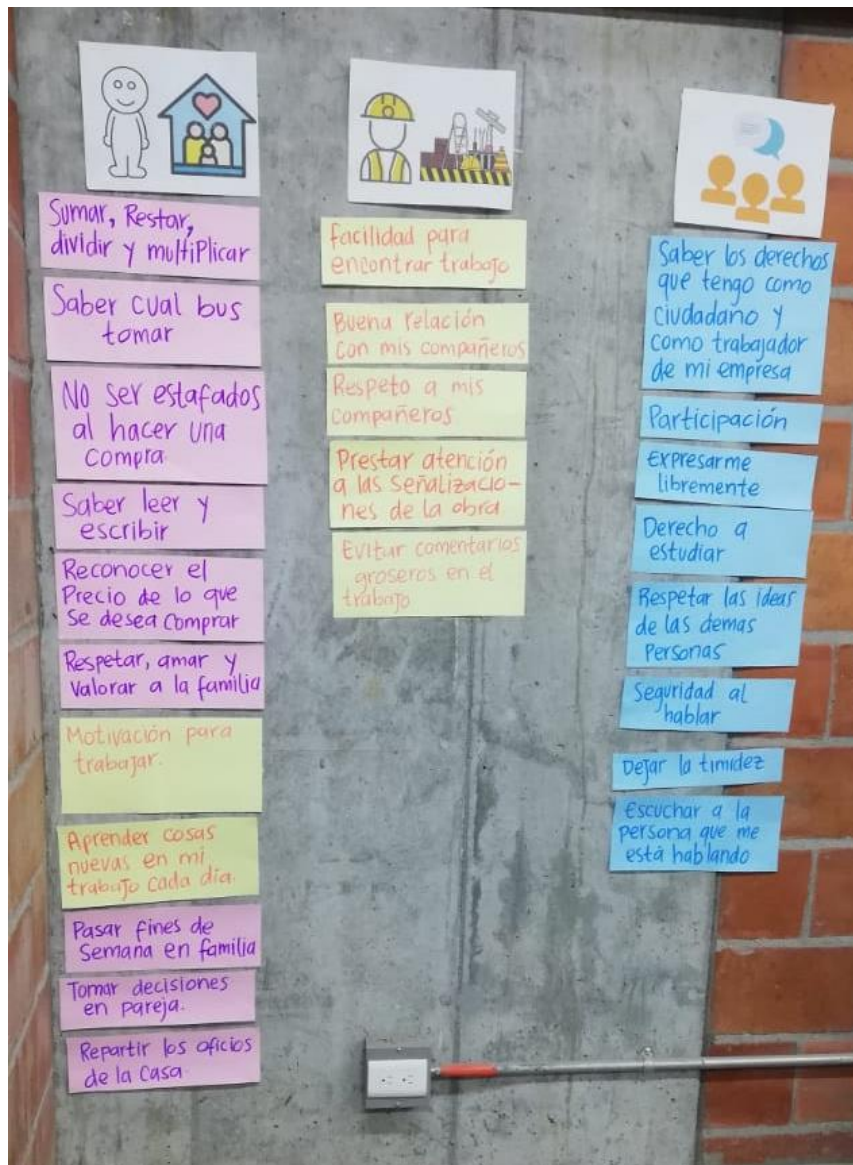 Sumar, Restar,
dividir y multiplicar
Saber cual bus
tomar
No ser estafados
al hacer una
compra
Saber leer y
escribir
Reconocer el
Precio de lo que
Se desea comprar
Respetar, amar y
Valorar a la familia
Motivación para
trabajar.
Aprender cosas
nuevas en mi
trabajo cada día.
Pasar fines de
Semana en familia
Tomar decisiones
en pareja.
Repartir los oficios
de la Casa
facilidad para
encontrar trabajo
Buena relación
con mis compañeros
Respeto a mis
compañeros
Prestar atención
a las señalizacio-
nes de la obra
Evitar comentarios
groseros en el
trabajo
Saber los derechos
que tengo como
ciudadano y
como trabajador
de mi empresa
Participación
Expresarme
libremente
Derecho a
estudiar
Respetar las ideas
de las demas
Personas
Seguridad al
hablar
Dejar la timidez
Escuchar a la
persona que me
está hablando